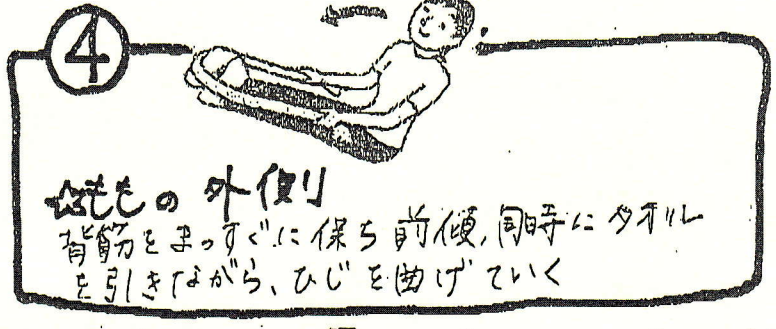 ④
☆ももの外側
背筋をまっすぐに保ち前傾、同時にタオル
を引きながら、ひじを曲げていく